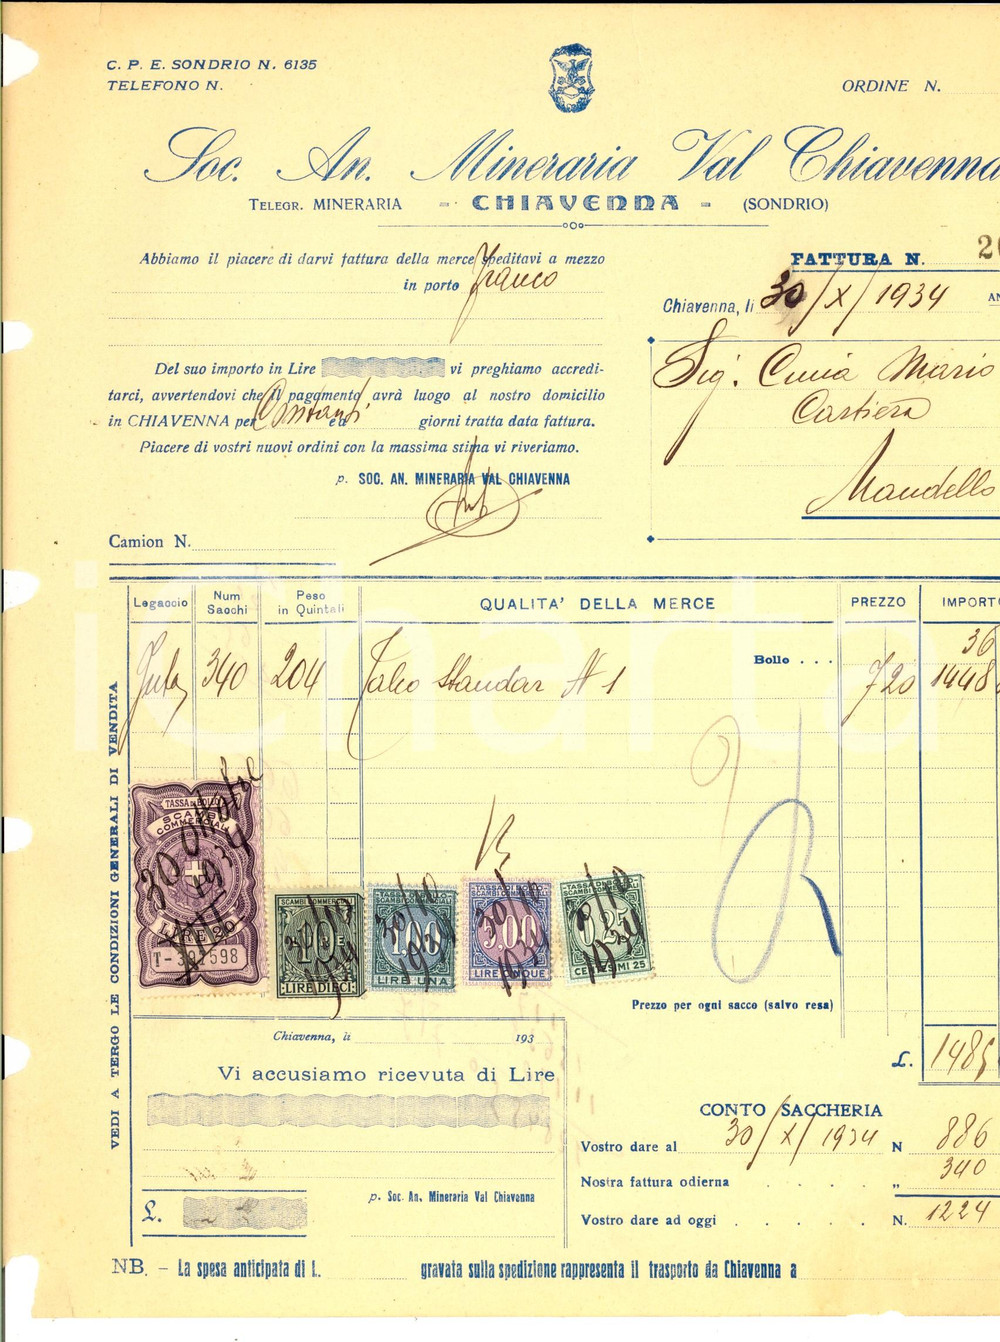 C. P. E. SONDRIO N. 6135
TELEFONO N.
ORDINE N.
Soc. An. Mineraria Val Chiavenna
TELEGR. MINERARIA - CHIAVENNA - (SONDRIO)
Abbiamo il piacere di darvi fattura della merce speditavi a mezzo
in porto Franco
FATTURA N. 20
Chiavenna, li 30/X/1934
Sig. Cima Mario
Cartiera
Mandello
Del suo importo in Lire vi preghiamo accredi-
tarci, avvertendovi che il pagamento avrà luogo al nostro domicilio
in CHIAVENNA per Contanti ed giorni tratta data fattura.
Piacere di vostri nuovi ordini con la massima stima vi riveriamo.
p. SOC. AN. MINERARIA VAL CHIAVENNA
Camion N.
Legaccio Num Sacchi Peso in Quintali QUALITA' DELLA MERCE PREZZO IMPORTO
Bollo . . . 36
Juta 340 204 Talco Standar N 1 720 1448
VEDI A TERGO LE CONDIZIONI GENERALI DI VENDITA
TASSA DI BOLLO
SCAMBI
COMMERCIALI
30 Ottobre
1934
LIRE 20
T-392598
SCAMBI COMMERCIALI
10 LIRE
LIRE DIECI
TASSA DI BOLLO
SCAMBI COMMERCIALI
1.00
LIRE UNA
30/10
1934
TASSA DI BOLLO
SCAMBI COMMERCIALI
5.00
LIRE CINQUE
30/10
1934
TASSA DI BOLLO
SCAMBI COMMERCIALI
0,25
CENTESIMI 25
30/10
1934
Prezzo per ogni sacco (salvo resa)
Chiavenna, li 193
Vi accusiamo ricevuta di Lire
£. 1485
CONTO SACCHERIA
Vostro dare al 30/X/1934 N 886
Nostra fattura odierna . . . . „ 340
Vostro dare ad oggi . . . . . N. 1224
p. Soc. An. Mineraria Val Chiavenna
£.
NB. - La spesa anticipata di L. gravata sulla spedizione rappresenta il trasporto da Chiavenna a
icharta